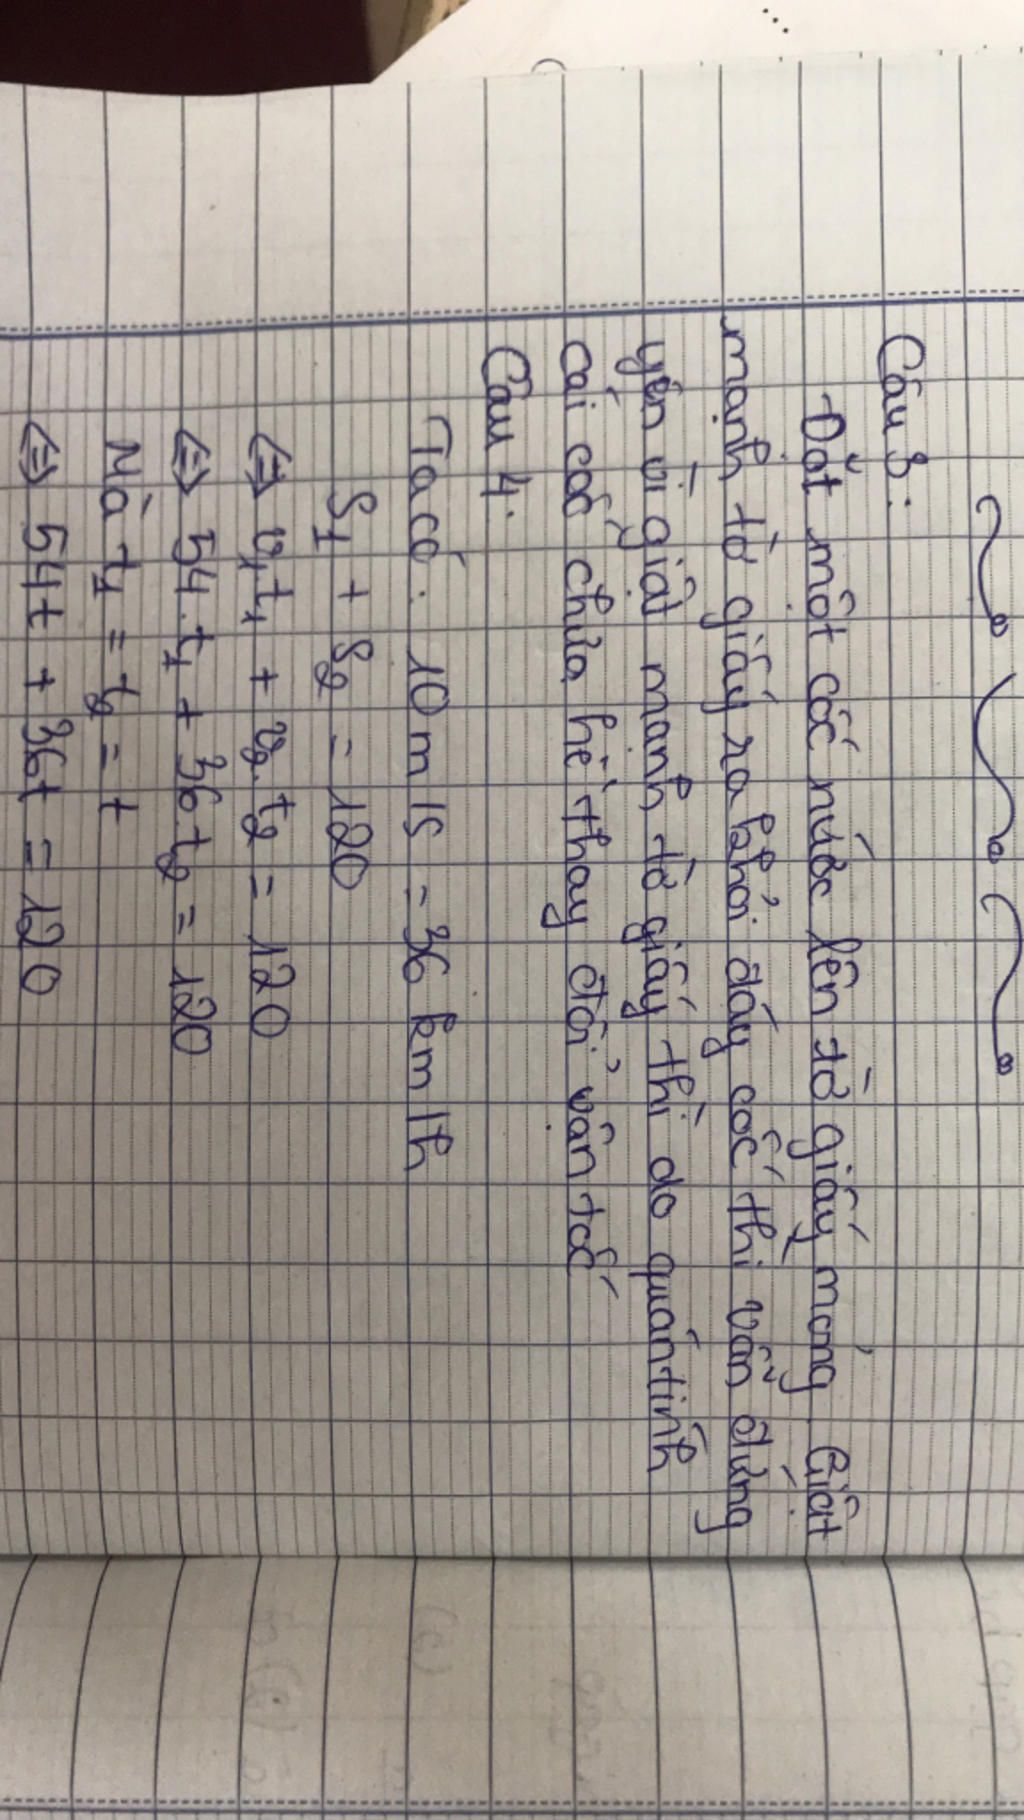 Câu 3:
Đặt một cốc nước lên tờ giấy mỏng. Giật
mạnh tờ giấy ra khỏi đáy cốc thì vẫn đứng
yên vì giật mạnh tờ giấy thì do quán tính
cái cốc chưa hề thay đổi vận tốc
Câu 4:
Ta có: 10 m/s = 36 km/h
S₁ + S₂ = 120
⇔ v₁t₁ + v₂.t₂ = 120
⇔ 54.t₁ + 36.t₂ = 120
Mà t₁ = t₂ = t
⇔ 54t + 36t = 120